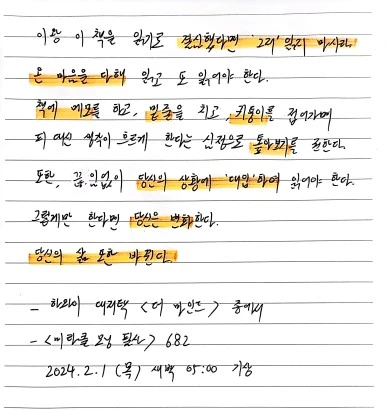 이왕 이 책을 읽기로 결심했다면 '그저' 읽지 마시라.
온 마음을 다해 읽고 또 읽어야 한다.
책에 메모를 하고, 밑줄을 치고, 귀퉁이를 접어가며
피 대신 생각이 흐르게 한다는 심정으로 톺아보기를 권한다.
또한, 끊임없이 당신의 상황에 '대입'하여 읽어야 한다.
그렇게만 한다면 당신은 변화한다.
당신의 삶 또한 바뀐다.
- 하와이 대저택 <더 마인드> 중에서
- <미라클 모닝 필사> 682
2024.2.1 (목) 새벽 05:00 기상